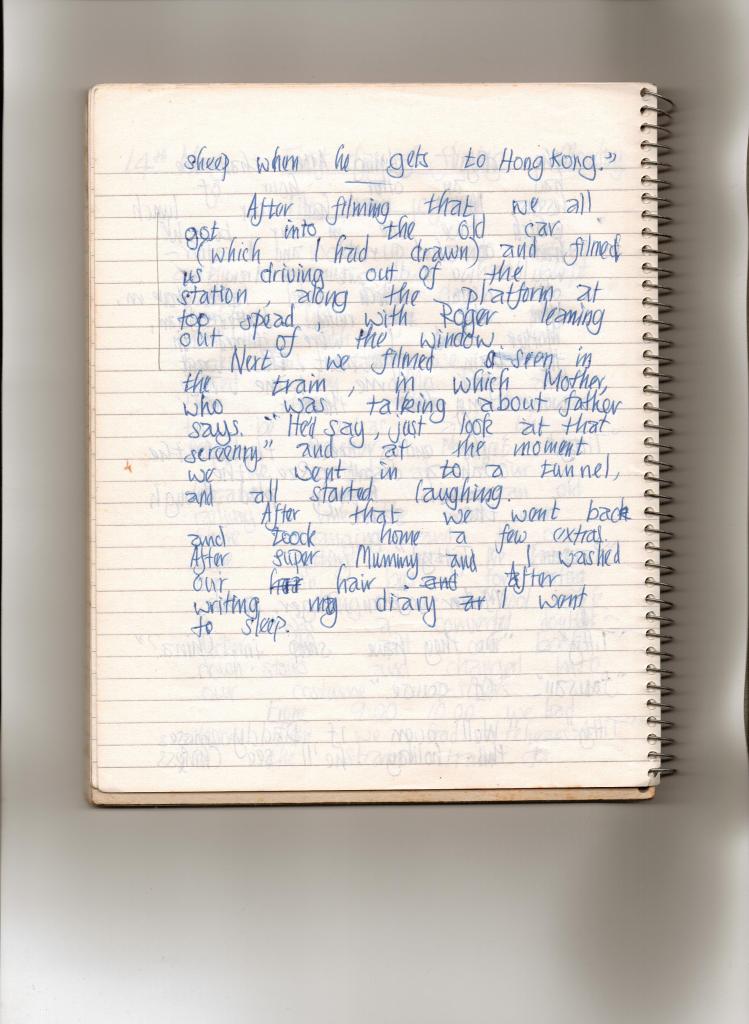 sheep when he gets to Hong Kong."
After filming that we all
got into the old car
(which I had drawn) and filmed
us driving out of the
station, along the platform at
top spead, with Roger leaning
out of the window.
Next we filmed a seen in
the train, in which Mother,
who was talking about father
says. "He'd say, just look at that
screenry" and at the moment
we went in to a tunnel,
and all started laughing.
After that we went back
and toock home a few extras.
After super Mummy and I washed
our hair hair and After
writing my diary I went
to sleep.